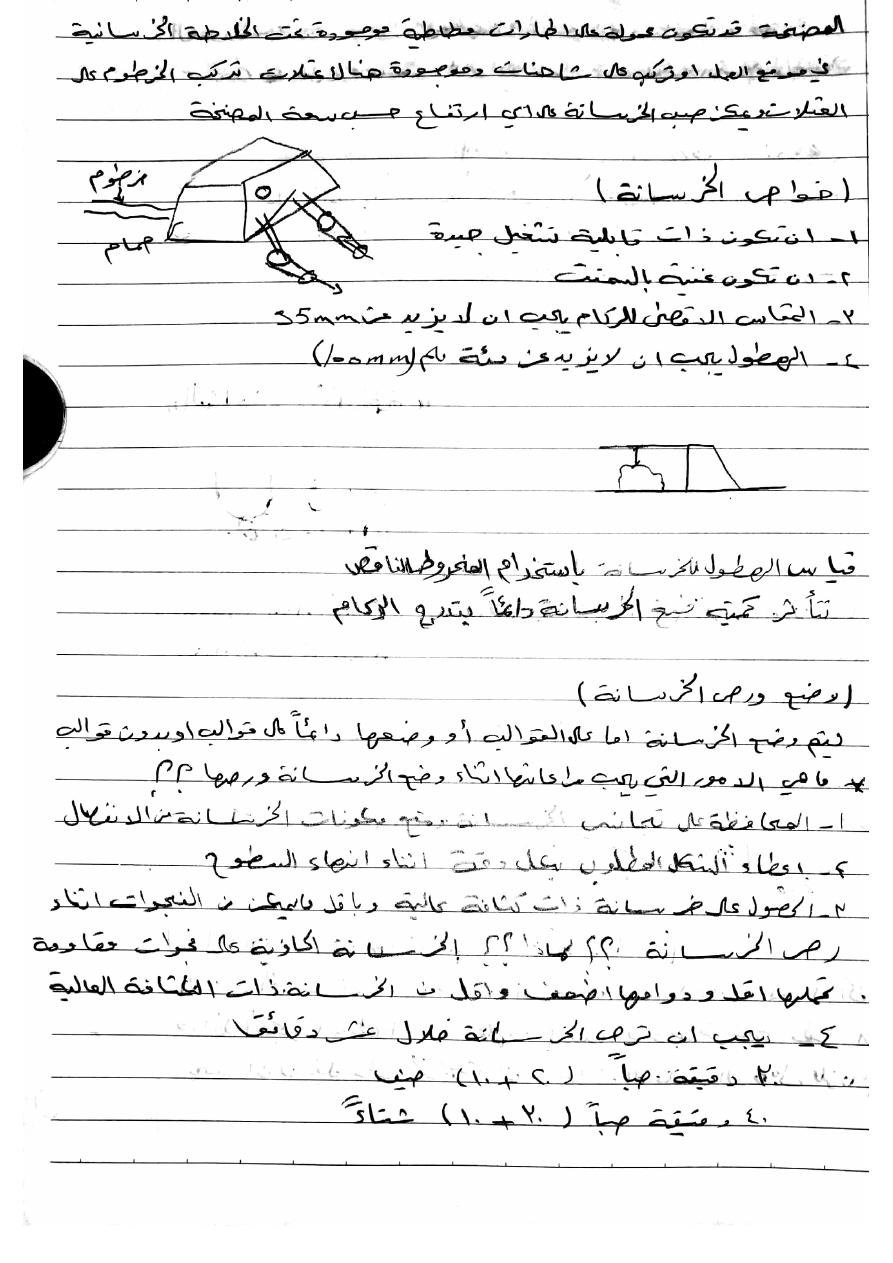 المضخة قد تكون محمولة على اطارات مطاطية موجودة تحت الخلاطة الخرسانية
في موقع العمل او تركب على شاحنات وموجودة هنالك عتلات تركب الخرطوم على
العتلات ويمكن صب الخرسانة على اي ارتفاع حسب سعة المضخة
خرطوم
صمام
(خواص الخرسانة)
١- ان تكون ذات قابلية تشغيل جيدة
٢- ان تكون غنية بالسمنت
٣- المقاس الاقصى للركام يجب ان لا يزيد عن 35mm
٤- الهطول يجب ان لا يزيد عن مئة ملم (100mm)
قياس الهطول للخرسانة بأستخدام المخروط الناقص
تتأثر كمية ضخ الخرسانة دائماً بتدرج الركام
(وضع ورص الخرسانة)
يتم وضع الخرسانة اما على القوالب أو وضعها دائماً على قوالب او بدون قوالب
* ماهي الامور التي يجب مراعاتها اثناء وضع الخرسانة ورصها ؟؟
١- المحافظة على تجانس الخرسانة ومنع مكونات الخرسانة من الانفصال
٢- اعطاء الشكل المطلوب بكل دقة اثناء انهاء السطوح
٣- الحصول على خرسانة ذات كثافة عالية وباقل مايمكن من الفجوات اثناء
رص الخرسانة ؟؟ لماذا ؟؟ الخرسانة الحاوية على فجوات مقاومة
تحملها اقل ودوامها اضعف واقل من الخرسانة ذات الكثافة العالية
٤- يجب ان ترص الخرسانة خلال عشر دقائق
٣٠ دقيقة صباً (٢٠ + ١٠) صيف
٤٠ دقيقة صباً (٣٠ + ١٠) شتاءً